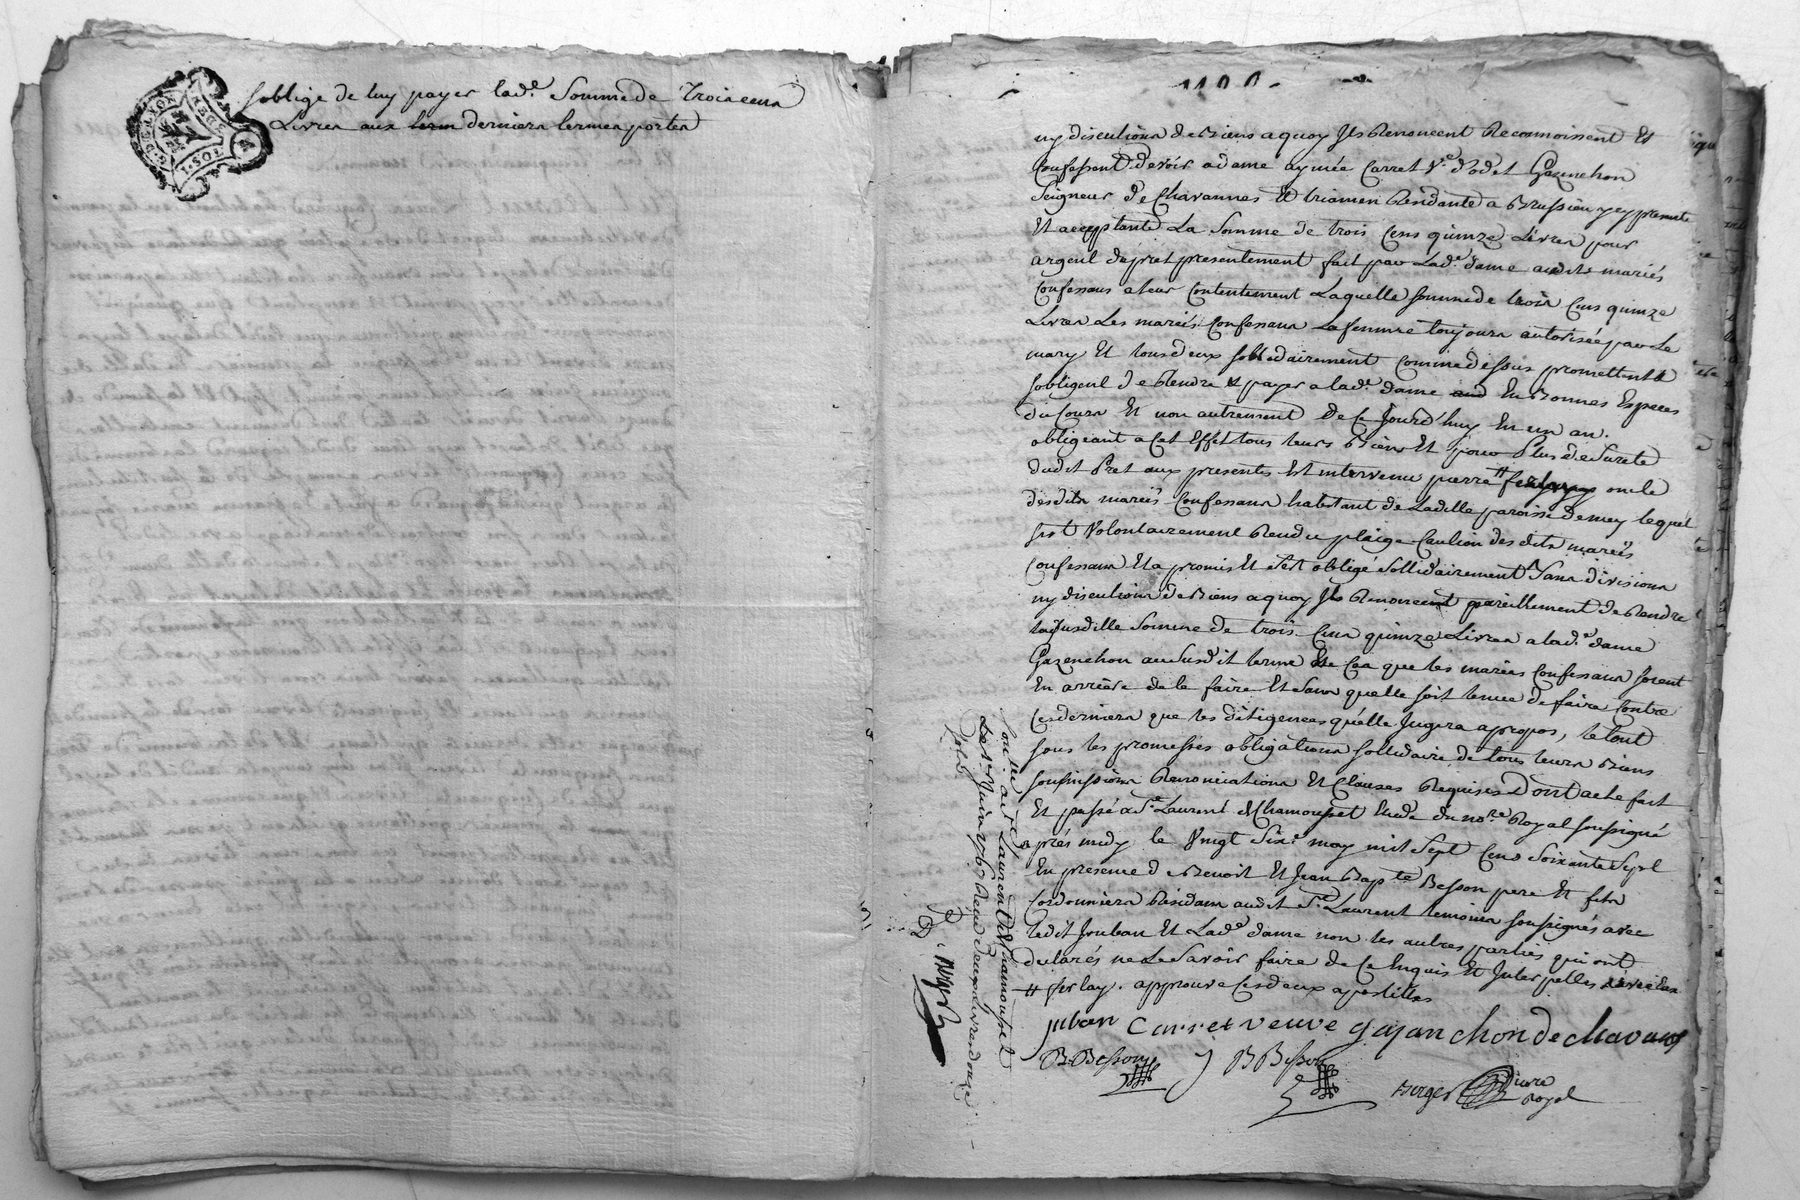 soblige de luy payer lad.e Somme de Troiscens
Livres aux term derniers termes portes
G. DE LYON
1. SOL
ny discutions de Biens a quoy Ils Renoncent Reconnoissent Et
Confessent devoir a dame aymée Carret V.e d'odet Gazenchon
Seigneur de Chavannes Et triamen Residante a Brussieu yey presente
Et acceptante La Somme de trois Cens quinze Livres pour
argent de pret presentement fait par Lad.e dame auxdits mariés
Confessans a leur Contentement Laquelle somme de trois Cens quinze
Livres Les mariés Confessans La femme toujours autorisée par Le
mary Et tous deux sollidairement Comme dessus promettent &
sobligent de Rendre & payer a lad.e dame En Bonnes Especes
du Cours Et non autrement de Ce Jourd'huy En un an.
obligeant a Cet Effet tous leurs Biens Et pour Plus de Sureté
dudit Pret aux presentes Est intervenu pierre # ferlay oncle
desdits mariés Confessans habitant de Laditte paroisse demey lequel
sest Volontairement Rendu plaige Caution des dits mariés
Confessans Et a promis Et sest obligé Sollidairement Sans divisions
ny discutions de Biens a quoy Ils Renoncent pareillement de Rendre
la susditte Somme de trois Cens quinze Livres a lad.e dame
Gazenchon au Susdit terme En Cas que les mariés Confessans soient
En arriere de le faire Et Sans quelle soit tenue de faire Contre
Ces derniers que les diligences qu'elle Jugera apropos, le tout
sous les promesses obligations sollidaire de tous leurs Biens
soumissions Renonciations Et Clauses Requises Dont acte fait
Et passé a S.t Laurent de Chamousset Etude du no.re Royal soussigné
aprés midy le Vingt Six.e may mil Sept Cens Soixante Sept
En presence de Benoit Et Jean Bap.te Besson pere Et fils
Cordonniers Residans audit S.t Laurent temoins soussignés avec
ledit Jouban Et Lad.e dame non les autres parties qui ont
declarés ne Le Savoir faire de Ce Enquis Et Interpellés
# ferlay. approuvé Ces deux apostilles
Juban Carret veuve gajanchon de chavans
B Besson J B Besson
Berger Notaire
Royal
Con.lé au S.t Laurent de Chamousset
Le 1.er Juin 1767 Recu deux Livres douze
Sols
Berger